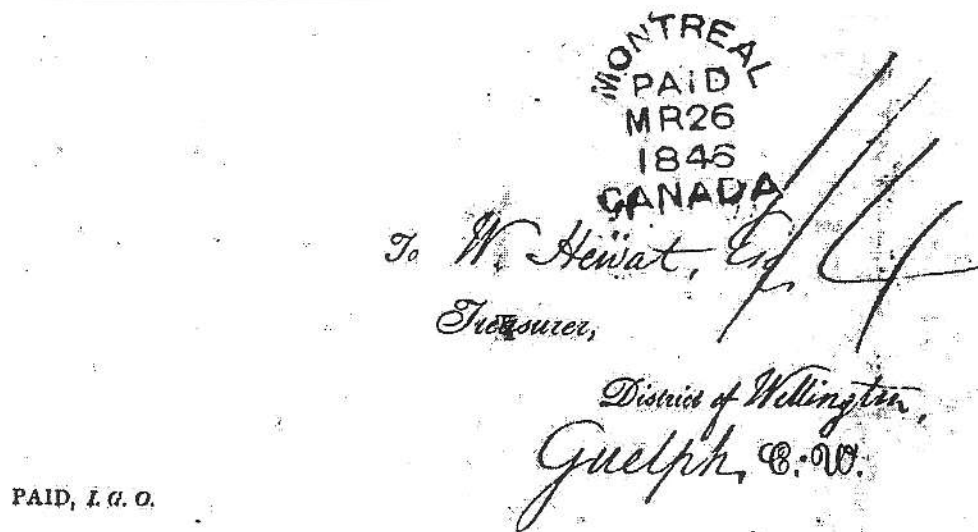 MONTREAL
PAID
MR26
1846
CANADA
To W. Hewat, Esq
Treasurer,
District of Wellington,
Guelph, C. W.
PAID, I. G. O.